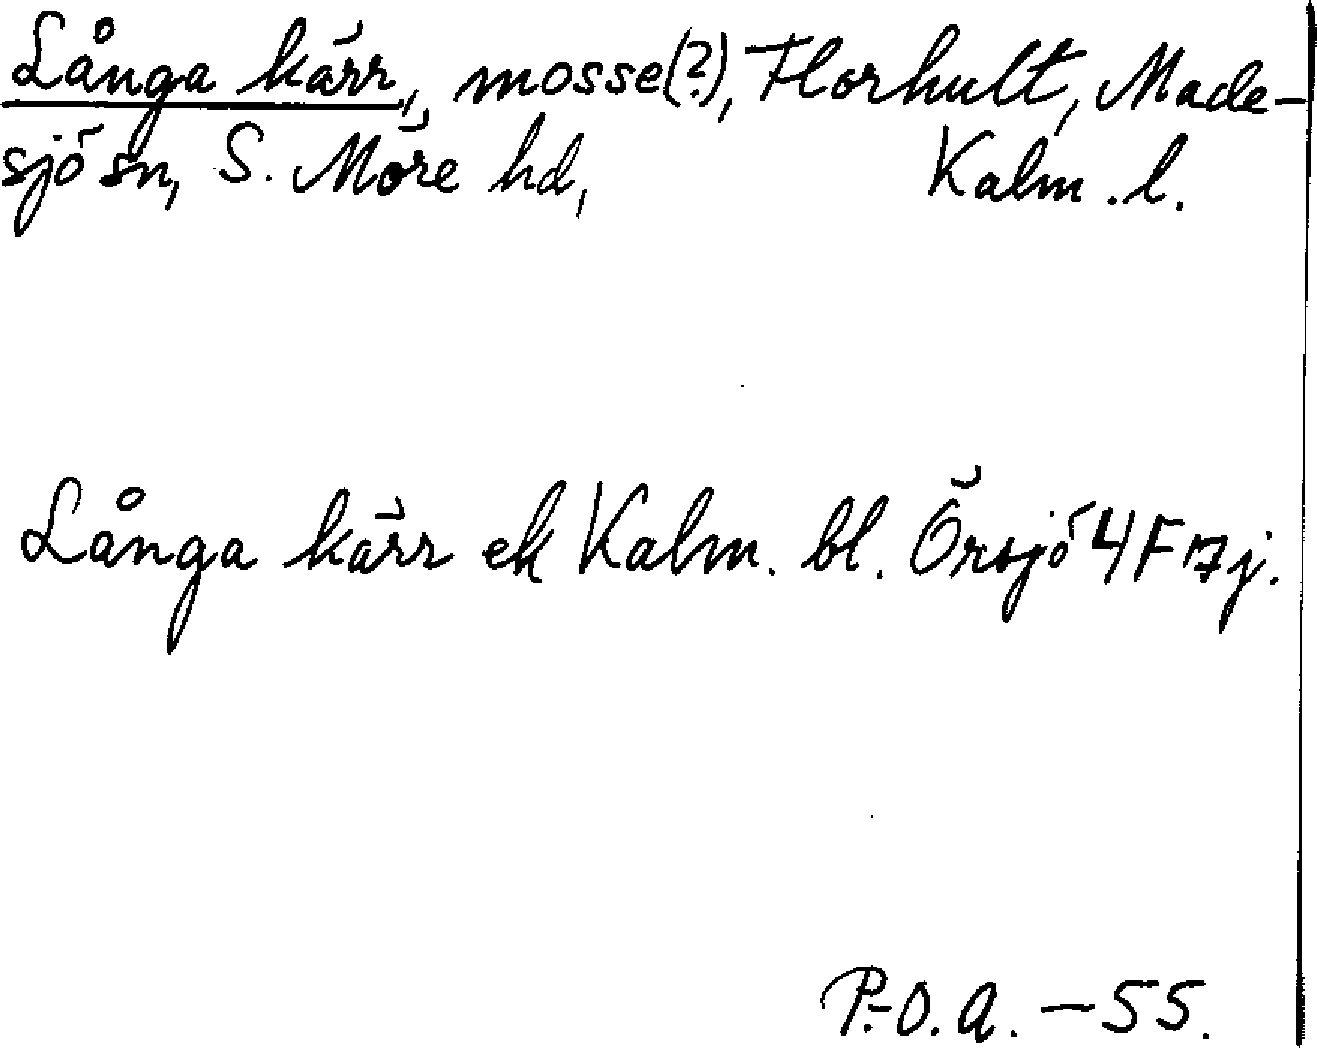 Långa kärr, mosse(?), Florhult, Made-
sjö sn, S. Möre hd, Kalm. l.
Långa kärr ek Kalm. bl. Örsjö 4F 17j.
P.-O. A. - 55.